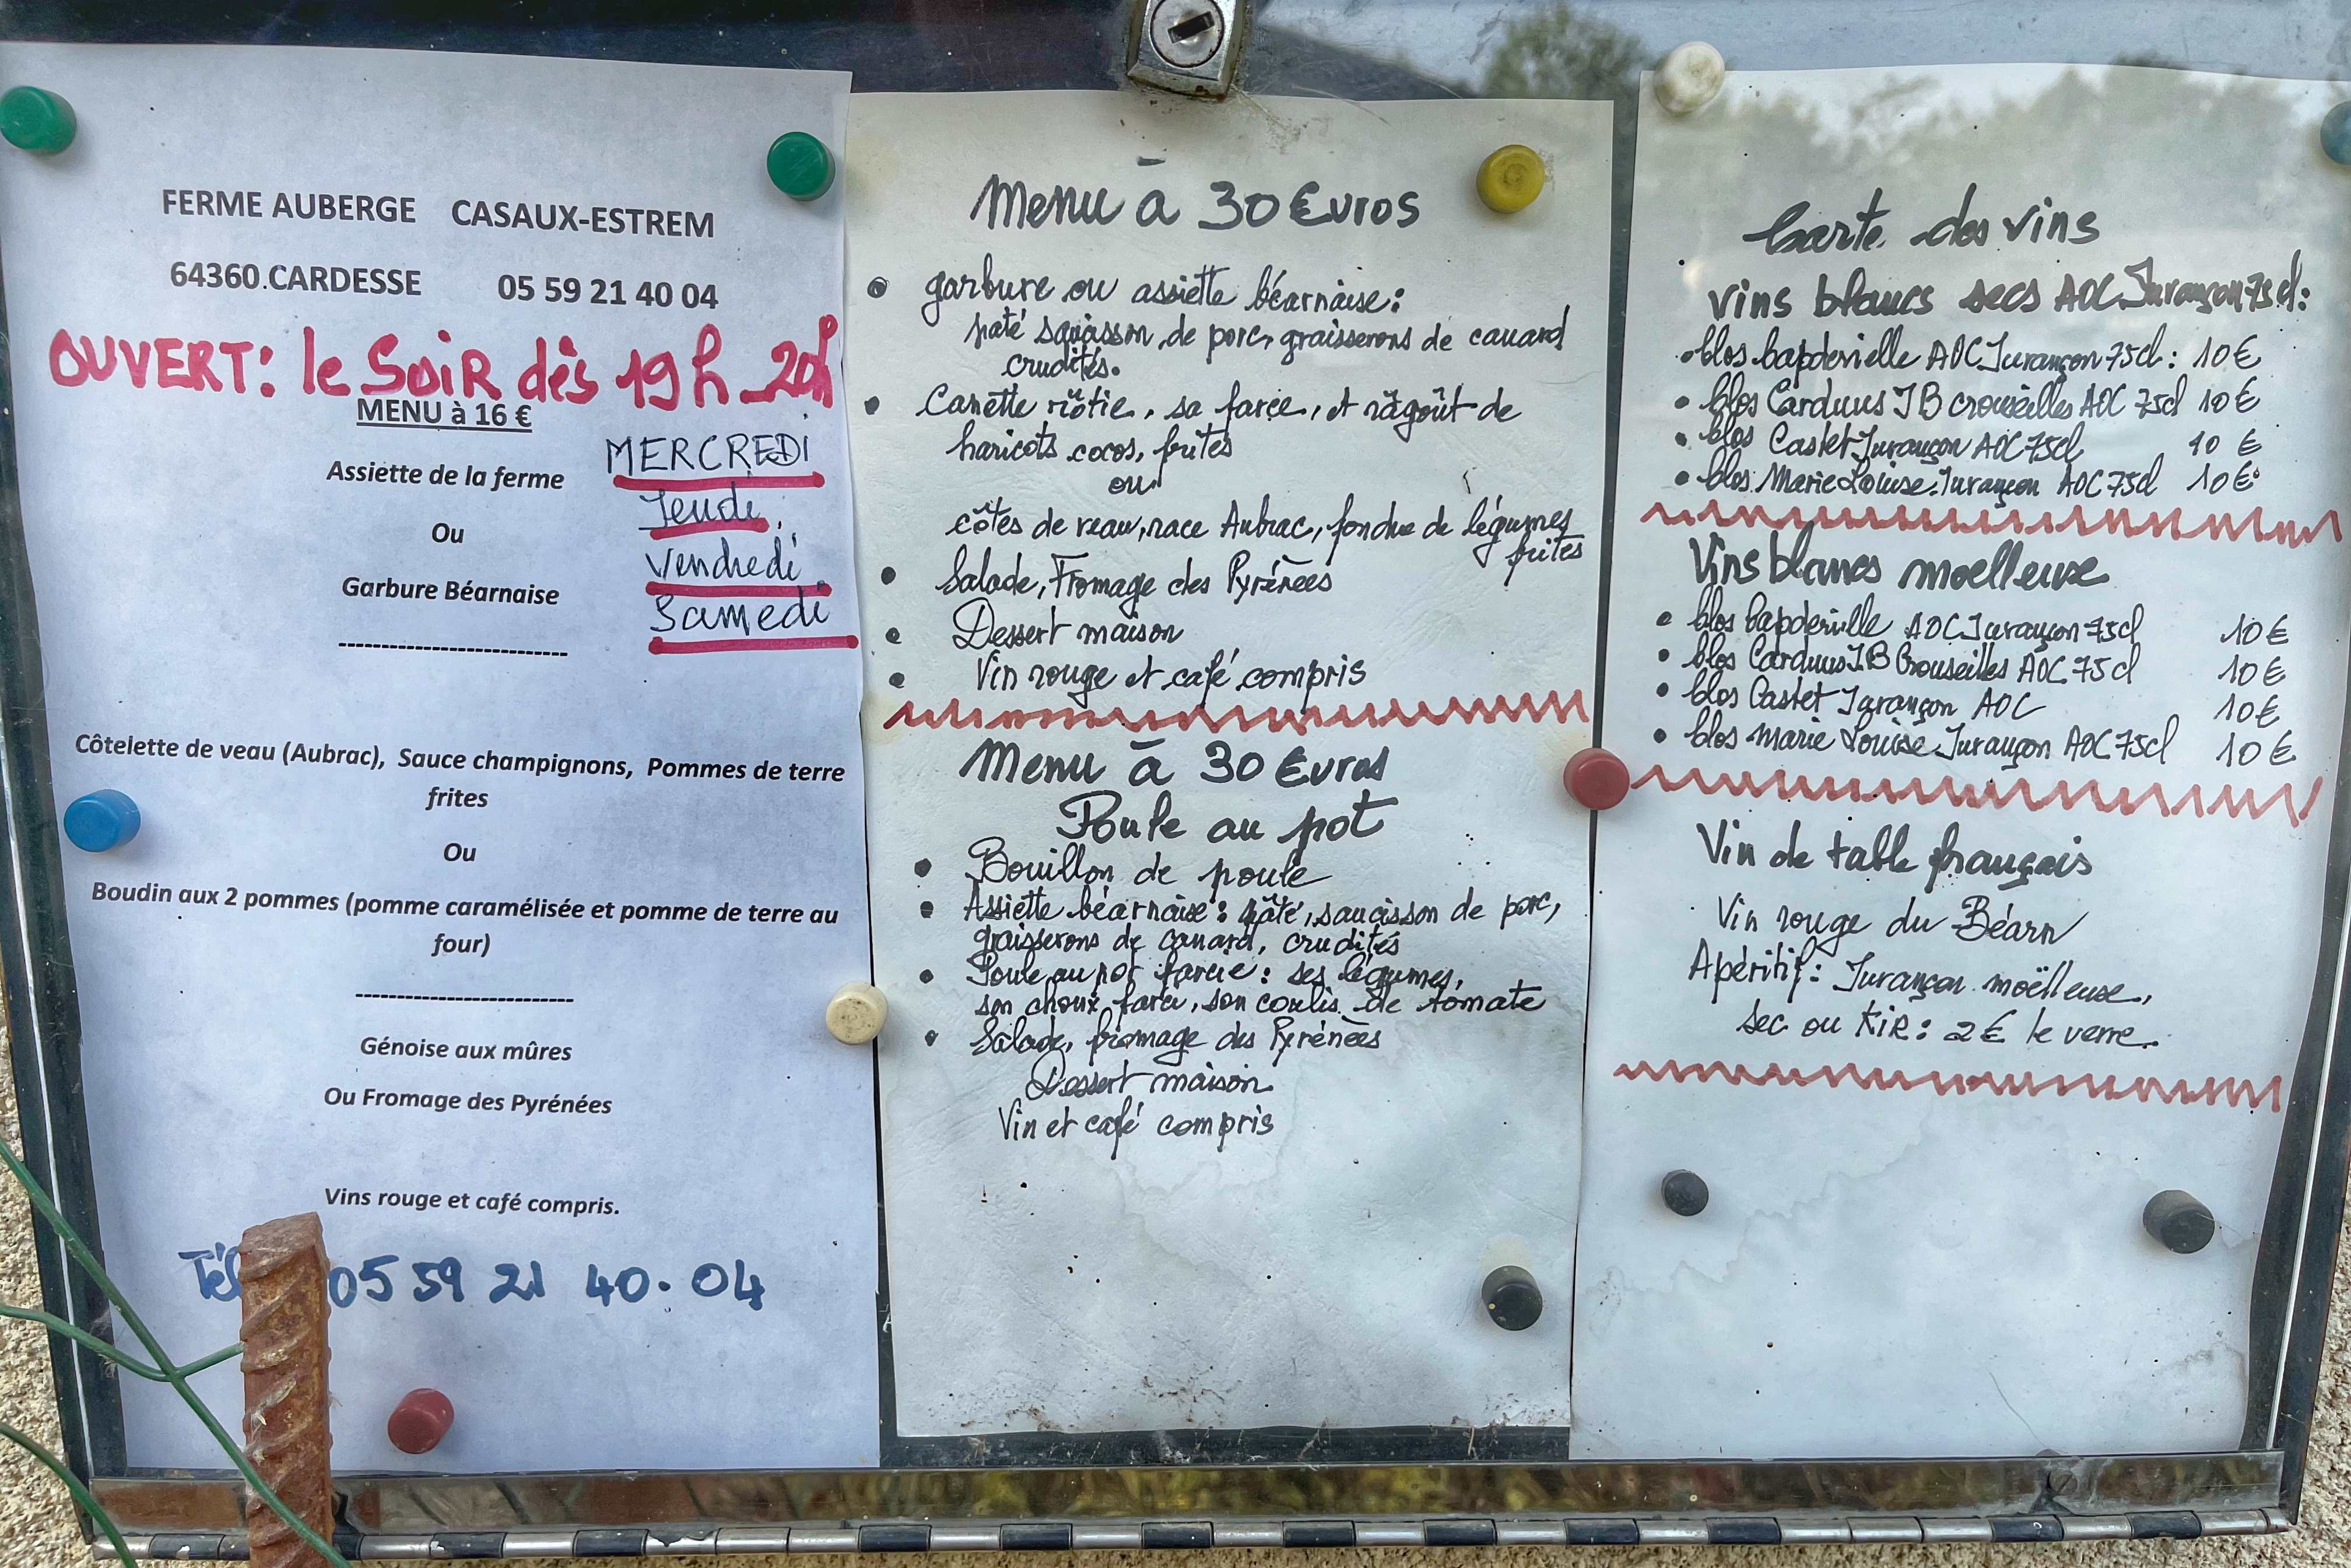 FERME AUBERGE CASAUX-ESTREM
64360.CARDESSE 05 59 21 40 04
OUVERT: le SOIR dès 19h_20h
MENU à 16 €
MERCREDI
Jeudi
Vendredi
Samedi
Assiette de la ferme
Ou
Garbure Béarnaise
----------------------------
Côtelette de veau (Aubrac), Sauce champignons, Pommes de terre
frites
Ou
Boudin aux 2 pommes (pomme caramélisée et pomme de terre au
four)
---------------------------
Génoise aux mûres
Ou Fromage des Pyrénées
Vins rouge et café compris.
Tél 05 59 21 40.04
Menu à 30 Euros
• garbure ou assiette béarnaise:
paté de porc, graisserons de canard
crudités.
• Canette rôtie, sa farce, et râgoût de
haricots cocos, frites
ou
côtes de veau, race Aubrac, fondue de légumes
frites
• Salade, Fromage des Pyrénées
• Dessert maison
• Vin rouge et café compris
Menu à 30 Euros
Poule au pot
• Bouillon de poule
• Assiette béarnaise: pâté, saucisson de porc,
graisserons de canard, crudités
• Poule au pot farcie: ses légumes,
son choux farci, son coulis de tomate
• Salade, fromage des Pyrénées
Dessert maison
Vin et café compris
Carte des vins
vins blancs secs AOC Jurançon 75cl:
• Clos Capdevielle AOC Jurançon 75cl: 10€
• Clos Carduus JB Crouseilles AOC 75cl 10€
• Clos Castet Jurançon AOC 75cl 10 €
• Clos Marie Louise Jurançon AOC 75cl 10€
Vins blancs moelleuse
• Clos Capdevielle AOC Jurançon 75cl 10€
• Clos Carduus JB Crouseilles AOC 75cl 10€
• Clos Castet Jurançon AOC 10€
• Clos marie Louise Jurançon AOC 75cl 10€
Vin de table français
Vin rouge du Béarn
Apéritif: Jurançon moëlleuse,
sec ou KIR: 2€ le verre.